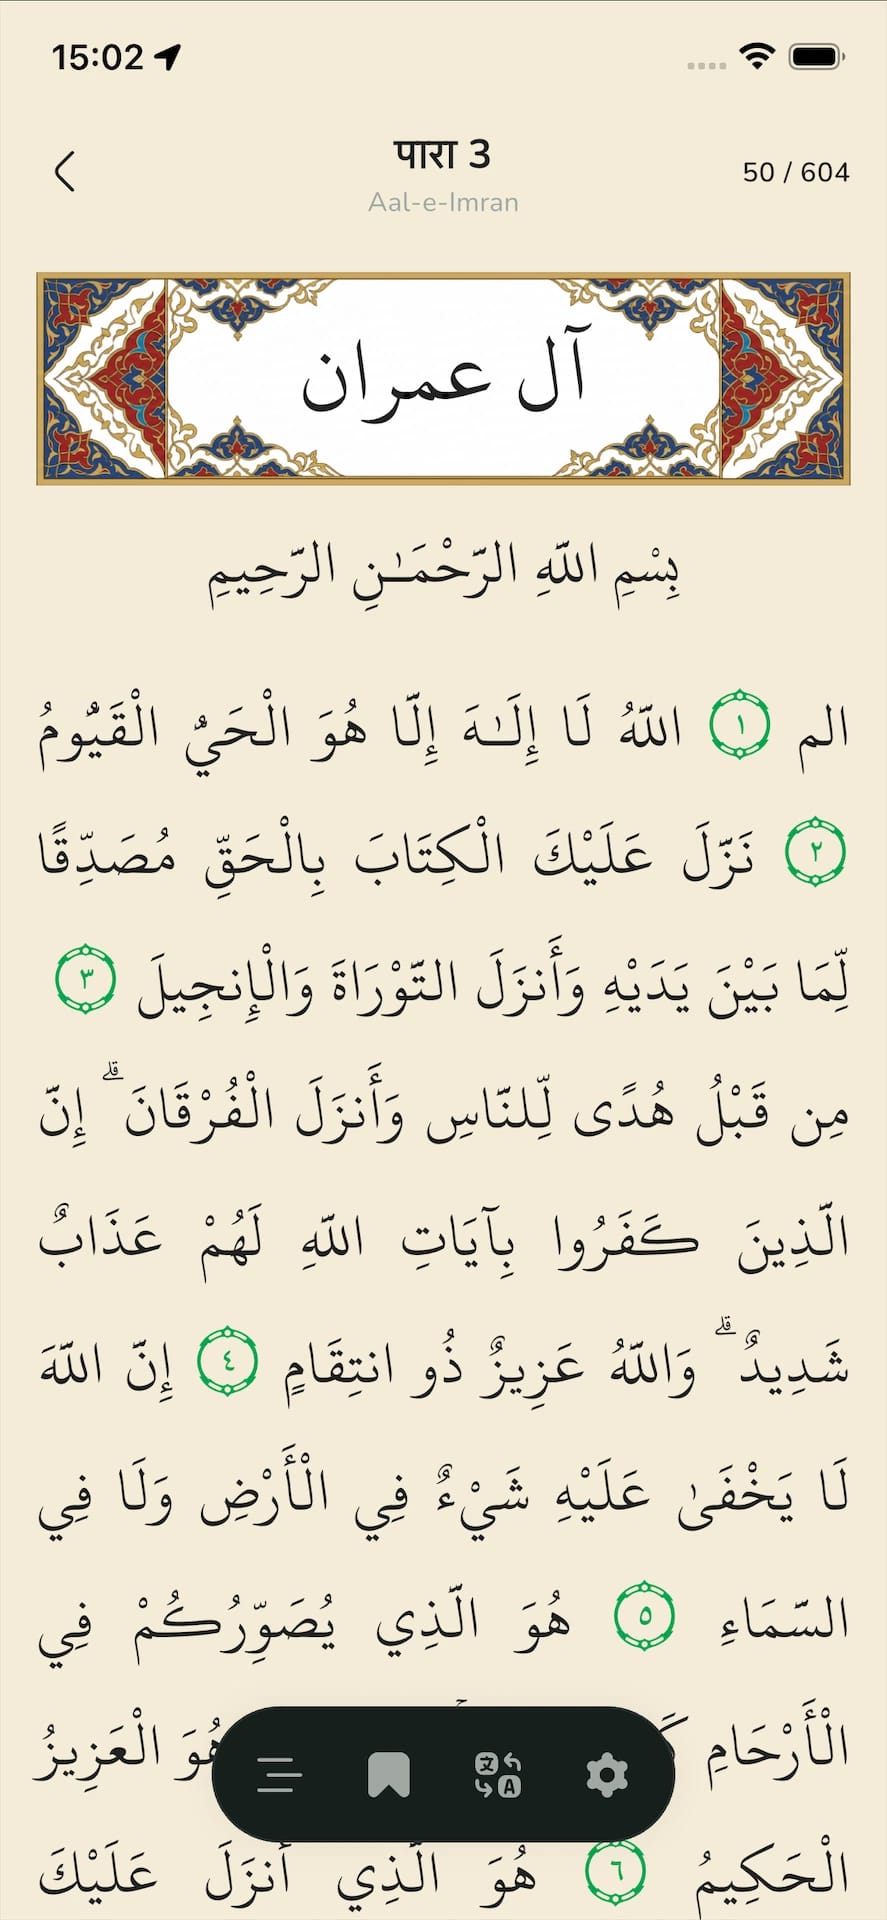 15:02
पारा 3
Aal-e-Imran
50 / 604
آل عمران
بِسْمِ اللَّهِ الرَّحْمَـٰنِ الرَّحِيمِ
الم ١ اللَّهُ لَا إِلَـٰهَ إِلَّا هُوَ الْحَيُّ الْقَيُّومُ
٢ نَزَّلَ عَلَيْكَ الْكِتَابَ بِالْحَقِّ مُصَدِّقًا
لِّمَا بَيْنَ يَدَيْهِ وَأَنزَلَ التَّوْرَاةَ وَالْإِنجِيلَ ٣
مِن قَبْلُ هُدًى لِّلنَّاسِ وَأَنزَلَ الْفُرْقَانَ ۗ إِنَّ
الَّذِينَ كَفَرُوا بِآيَاتِ اللَّهِ لَهُمْ عَذَابٌ
شَدِيدٌ ۗ وَاللَّهُ عَزِيزٌ ذُو انتِقَامٍ ٤ إِنَّ اللَّهَ
لَا يَخْفَىٰ عَلَيْهِ شَيْءٌ فِي الْأَرْضِ وَلَا فِي
السَّمَاءِ ٥ هُوَ الَّذِي يُصَوِّرُكُمْ فِي
الْأَرْحَامِ هُوَ الْعَزِيزُ
الْحَكِيمُ ٦ هُوَ الَّذِي أَنزَلَ عَلَيْكَ